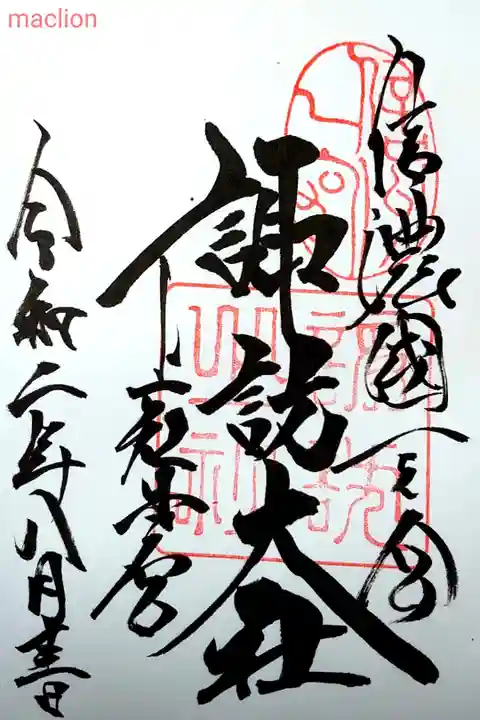 maclion
信濃國一之宮
諏訪大社
下社秋宮
令和二年八月